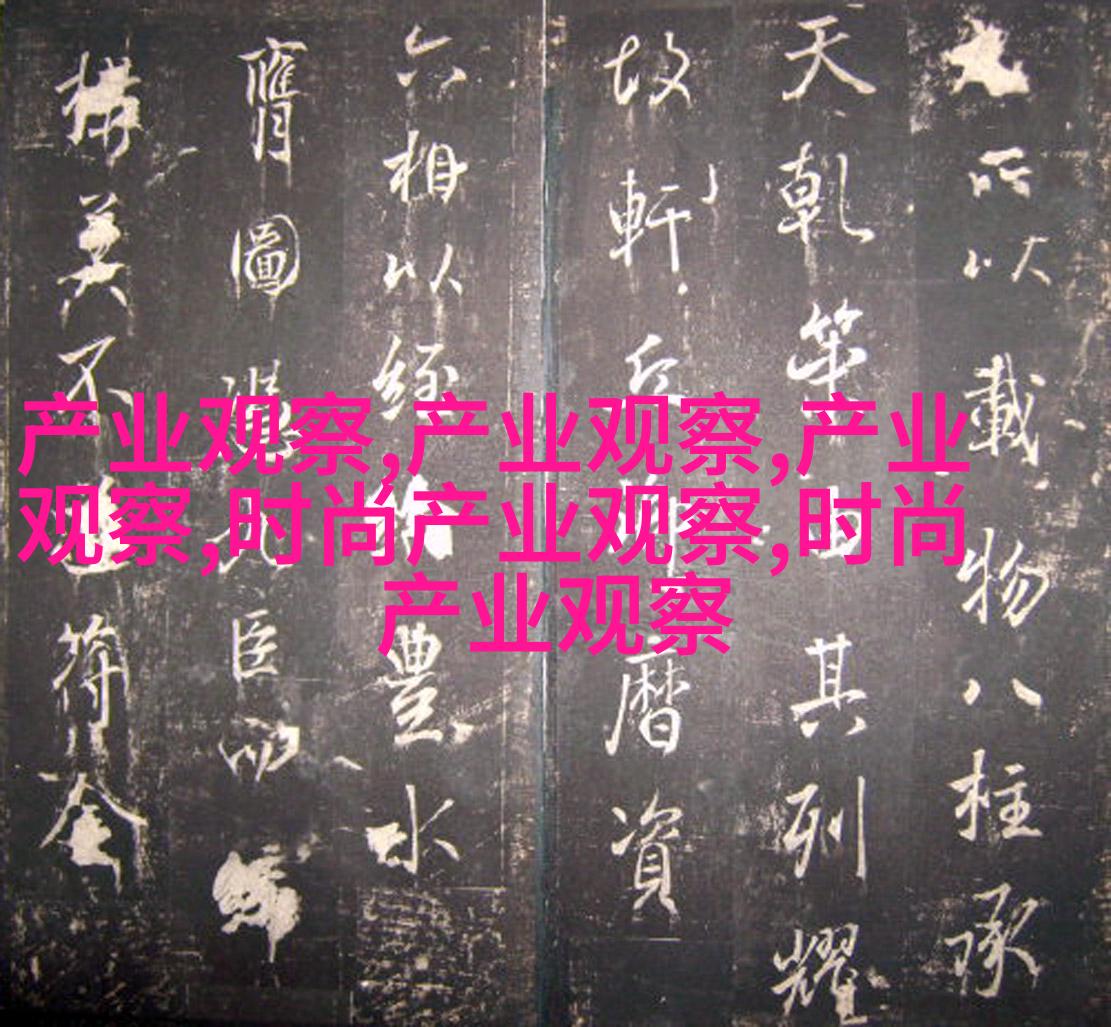 所以載物八柱承
天乾其列耀
故軒丘曆資
六相以經豐水
膺圖臣
構莫不符奎
产业观察,产业观察,产业
观察,时尚产业观察,时尚
产业观察